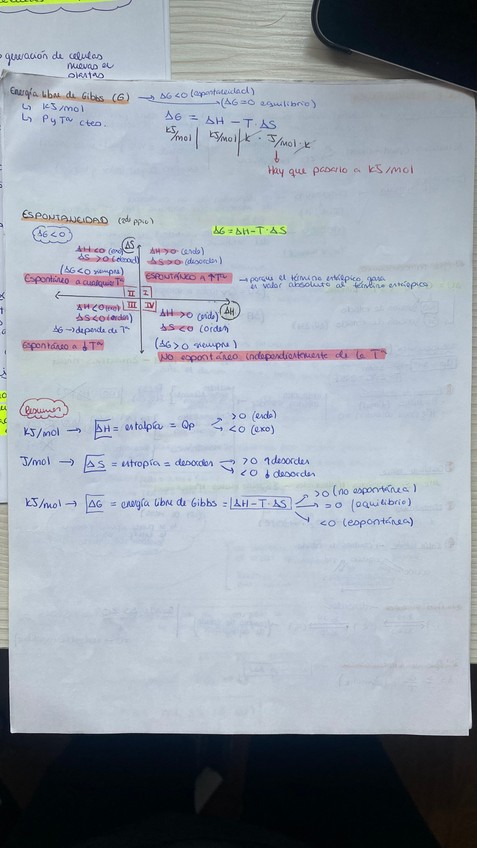 generación de celulas
nuevas en
Energía libre de Gibbs (G) → ΔG<0 (espontaneidad)
→ (ΔG=0 equilibrio)
↳ KJ/mol
↳ P y Tª ctes.
ΔG = ΔH - T·ΔS
KJ/mol | KJ/mol | K · J/mol·K
Hay que pasarlo a KJ/mol
ESPONTANEIDAD (2º ppio)
ΔG<0
ΔG=ΔH-T·ΔS
ΔS
ΔH<0 (exo)
ΔS>0 (desord)
(ΔG<0 siempre)
Espontáneo a cualquier Tª
ΔH>0 (endo)
ΔS>0 (desorden)
ESPONTÁNEO A ↑Tª → porque el término entrópico gana
el valor absoluto al término entálpico
II I
III IV
ΔH
ΔH<0 (exo)
ΔS<0 (orden)
ΔG → depende de Tª
Espontáneo a ↓Tª
ΔH>0 (endo)
ΔS<0 (orden)
(ΔG>0 siempre)
No espontáneo independientemente de la Tª
Resumen
KJ/mol → ΔH = entalpía = Qp
>0 (endo)
<0 (exo)
J/mol → ΔS = entropía = desorden
>0 ↑desorden
<0 ↓desorden
KJ/mol → ΔG = energía libre de Gibbs = ΔH-T·ΔS
>0 (no espontánea)
=0 (equilibrio)
<0 (espontánea)